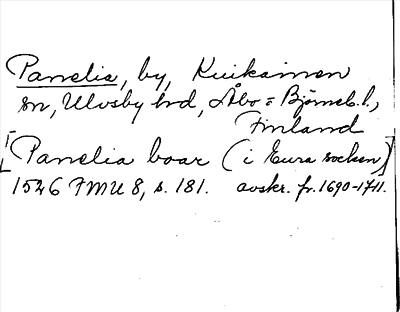 Panelia, by, Kiukainen
sn, Ulvsby hd, Åbo = Björneb. l.,
Finland
[Panelia boar (i Eura socken)]
1526 FMU 8, s. 181. avskr. fr. 1690-1711.